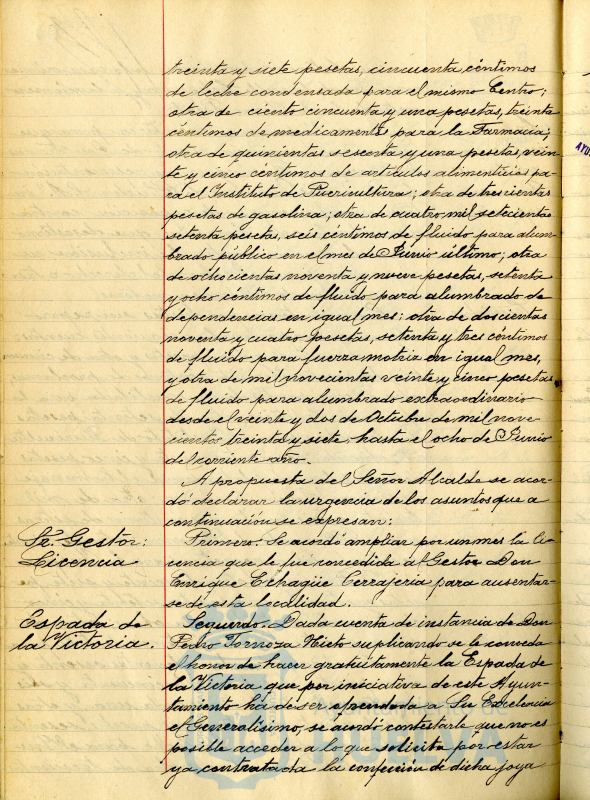 treinta y siete pesetas, cincuenta céntimos
de leche condensada para el mismo Centro;
otra de ciento cincuenta y una pesetas, treinta
céntimos de medicamentos para la Farmacia;
otra de quinientas sesenta y una pesetas, vein-
te y cinco céntimos de artículos alimenticios pa-
ra el Instituto de Puericultura; otra de trescientas
pesetas de gasolina; otra de cuatro mil setecientas
setenta pesetas, seis céntimos de fluido para alum-
brado público en el mes de Junio último; otra
de ochocientas noventa y nueve pesetas, setenta
y ocho céntimos de fluido para alumbrado de
dependencias en igual mes; otra de doscientas
noventa y cuatro pesetas, setenta y tres céntimos
de fluido para fuerza motriz en igual mes,
y otra de mil novecientas veinte y cinco pesetas
de fluido para alumbrado extraordinario
desde el veinte y dos de Octubre de mil nove-
cientos treinta y siete hasta el ocho de Junio
del corriente año.
A propuesta del Señor Alcalde se acor-
dó declarar la urgencia de los asuntos que a
continuación se expresan:
Sr. Gestor:
Licencia
Primero: Se acordó ampliar por un mes la li-
cencia que le fué concedida al Gestor Don
Enrique Echagüe Cerrajeria para ausentar-
se de esta localidad.
Espada de
la Victoria.
Segundo: Dada cuenta de instancia de Don
Pedro Tornoza Nieto suplicando se le conceda
el honor de hacer gratuitamente la Espada de
la Victoria que por iniciativa de este Ayun-
tamiento há de ser ofrendada a Su Excelencia
el Generalísimo, se acordó contestarle que no es
posible acceder a lo que solicita por estar
ya contratada la confección de dicha joya
AYU